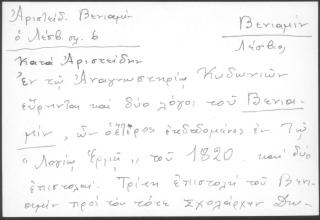 Ἀριστείδ. Βενιαμὶν
ὁ Λέσβ. σλ. 6
Βενιαμίν
Λέσβιος
Κατὰ Ἀριστείδην
Ἐν τῷ Ἀναγνωστηρίῳ Κυδωνιῶν
εὕρηνται καὶ δύο λόγοι τοῦ Βενια-
μίν, ὧν ὁ ἕτερος ἐκδεδομένος ἐν τῷ
"Λογίῳ Ἑρμῇ" τοῦ 1820. καὶ δύο
ἐπιστολαί. Τρίτη ἐπιστολὴ τοῦ Βενι-
αμὶν πρὸς τὸν τότε Σχολάρχην